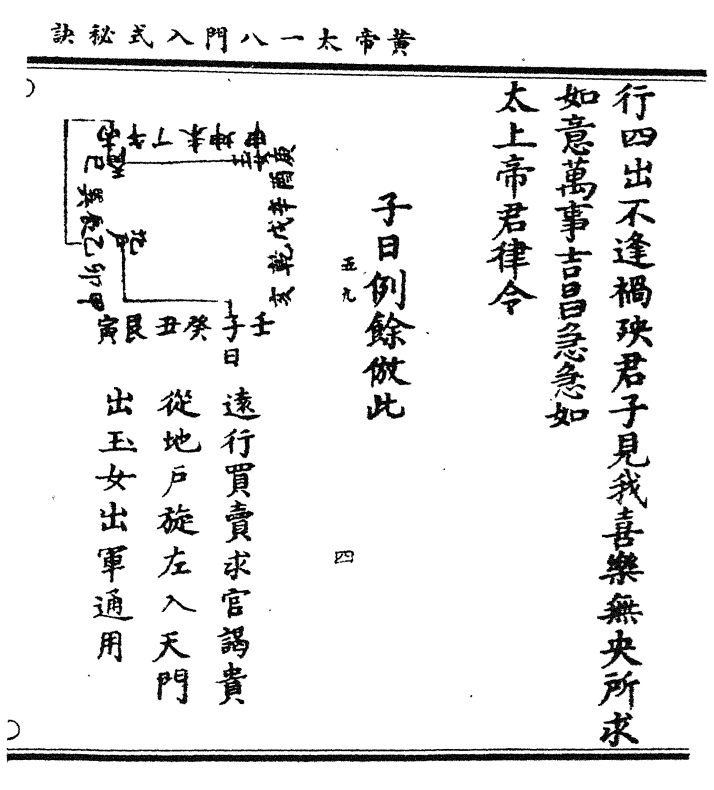 黃帝太一八門入式秘訣
行四出不逢禍殃君子見我喜樂無央所求
如意萬事吉昌急急如
太上帝君律令
子日例餘倣此
五九
四
丙午丁未坤申
庚酉辛戌乾亥
巳巽辰乙卯甲
壬子癸丑艮寅
日
遠行買賣求官謁貴
從地戶旋左入天門
出玉女出軍通用